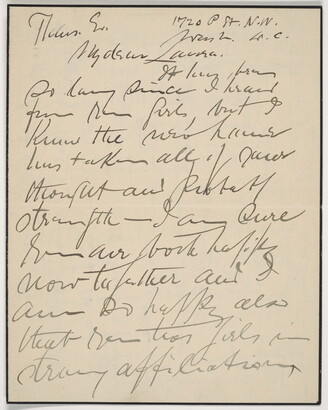 Thurs. Ev. 1720 P St. N.W.
Wash. D.C.
My dear Laura.
It has been
so long since I heard
from you girls, but I
know the new home
has taken all of your
thought and probably
strength — I am sure
you are both happy
now together and I
am so happy also
that you two girls in
strong affiliation,